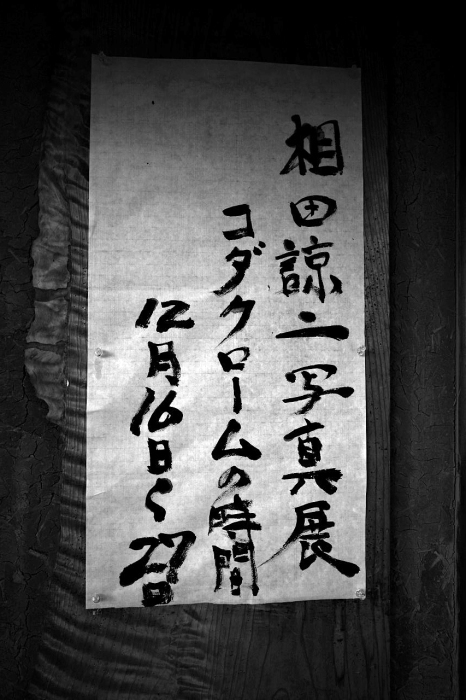 相田諒二写真展
コダクロームの時間
12月16日〜27日